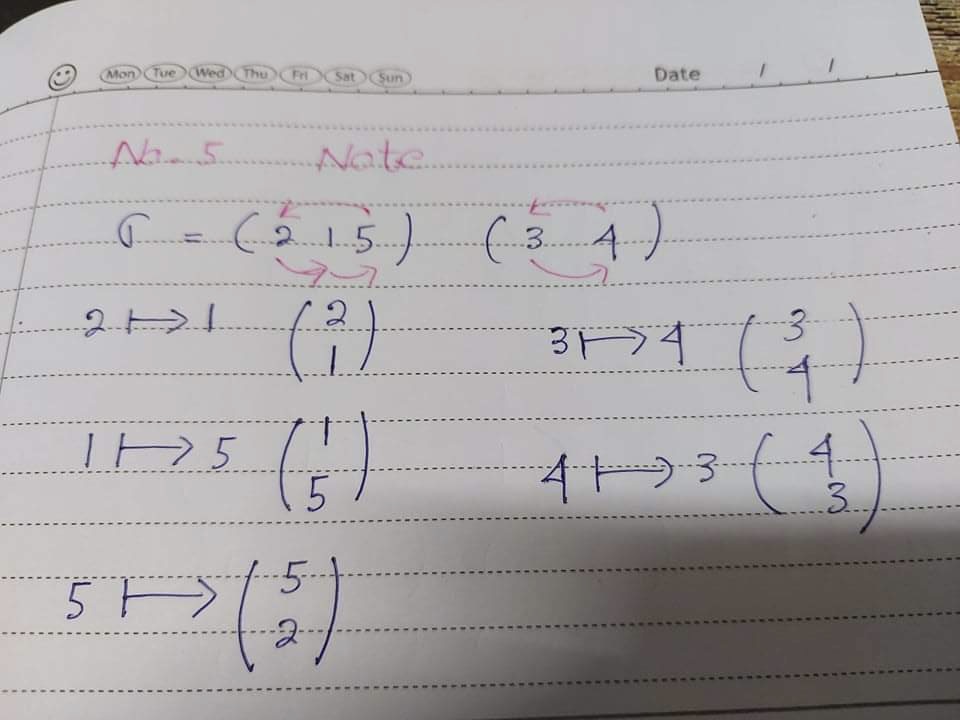 Mon Tue Wed Thu Fri Sat Sun Date / /
No. 5 Note
σ = ( 2 1 5 ) ( 3 4 )
2 ↦ 1 ( 2 1 ) 3 ↦ 4 ( 3 4 )
1 ↦ 5 ( 1 5 ) 4 ↦ 3 ( 4 3 )
5 ↦ ( 5 2 )